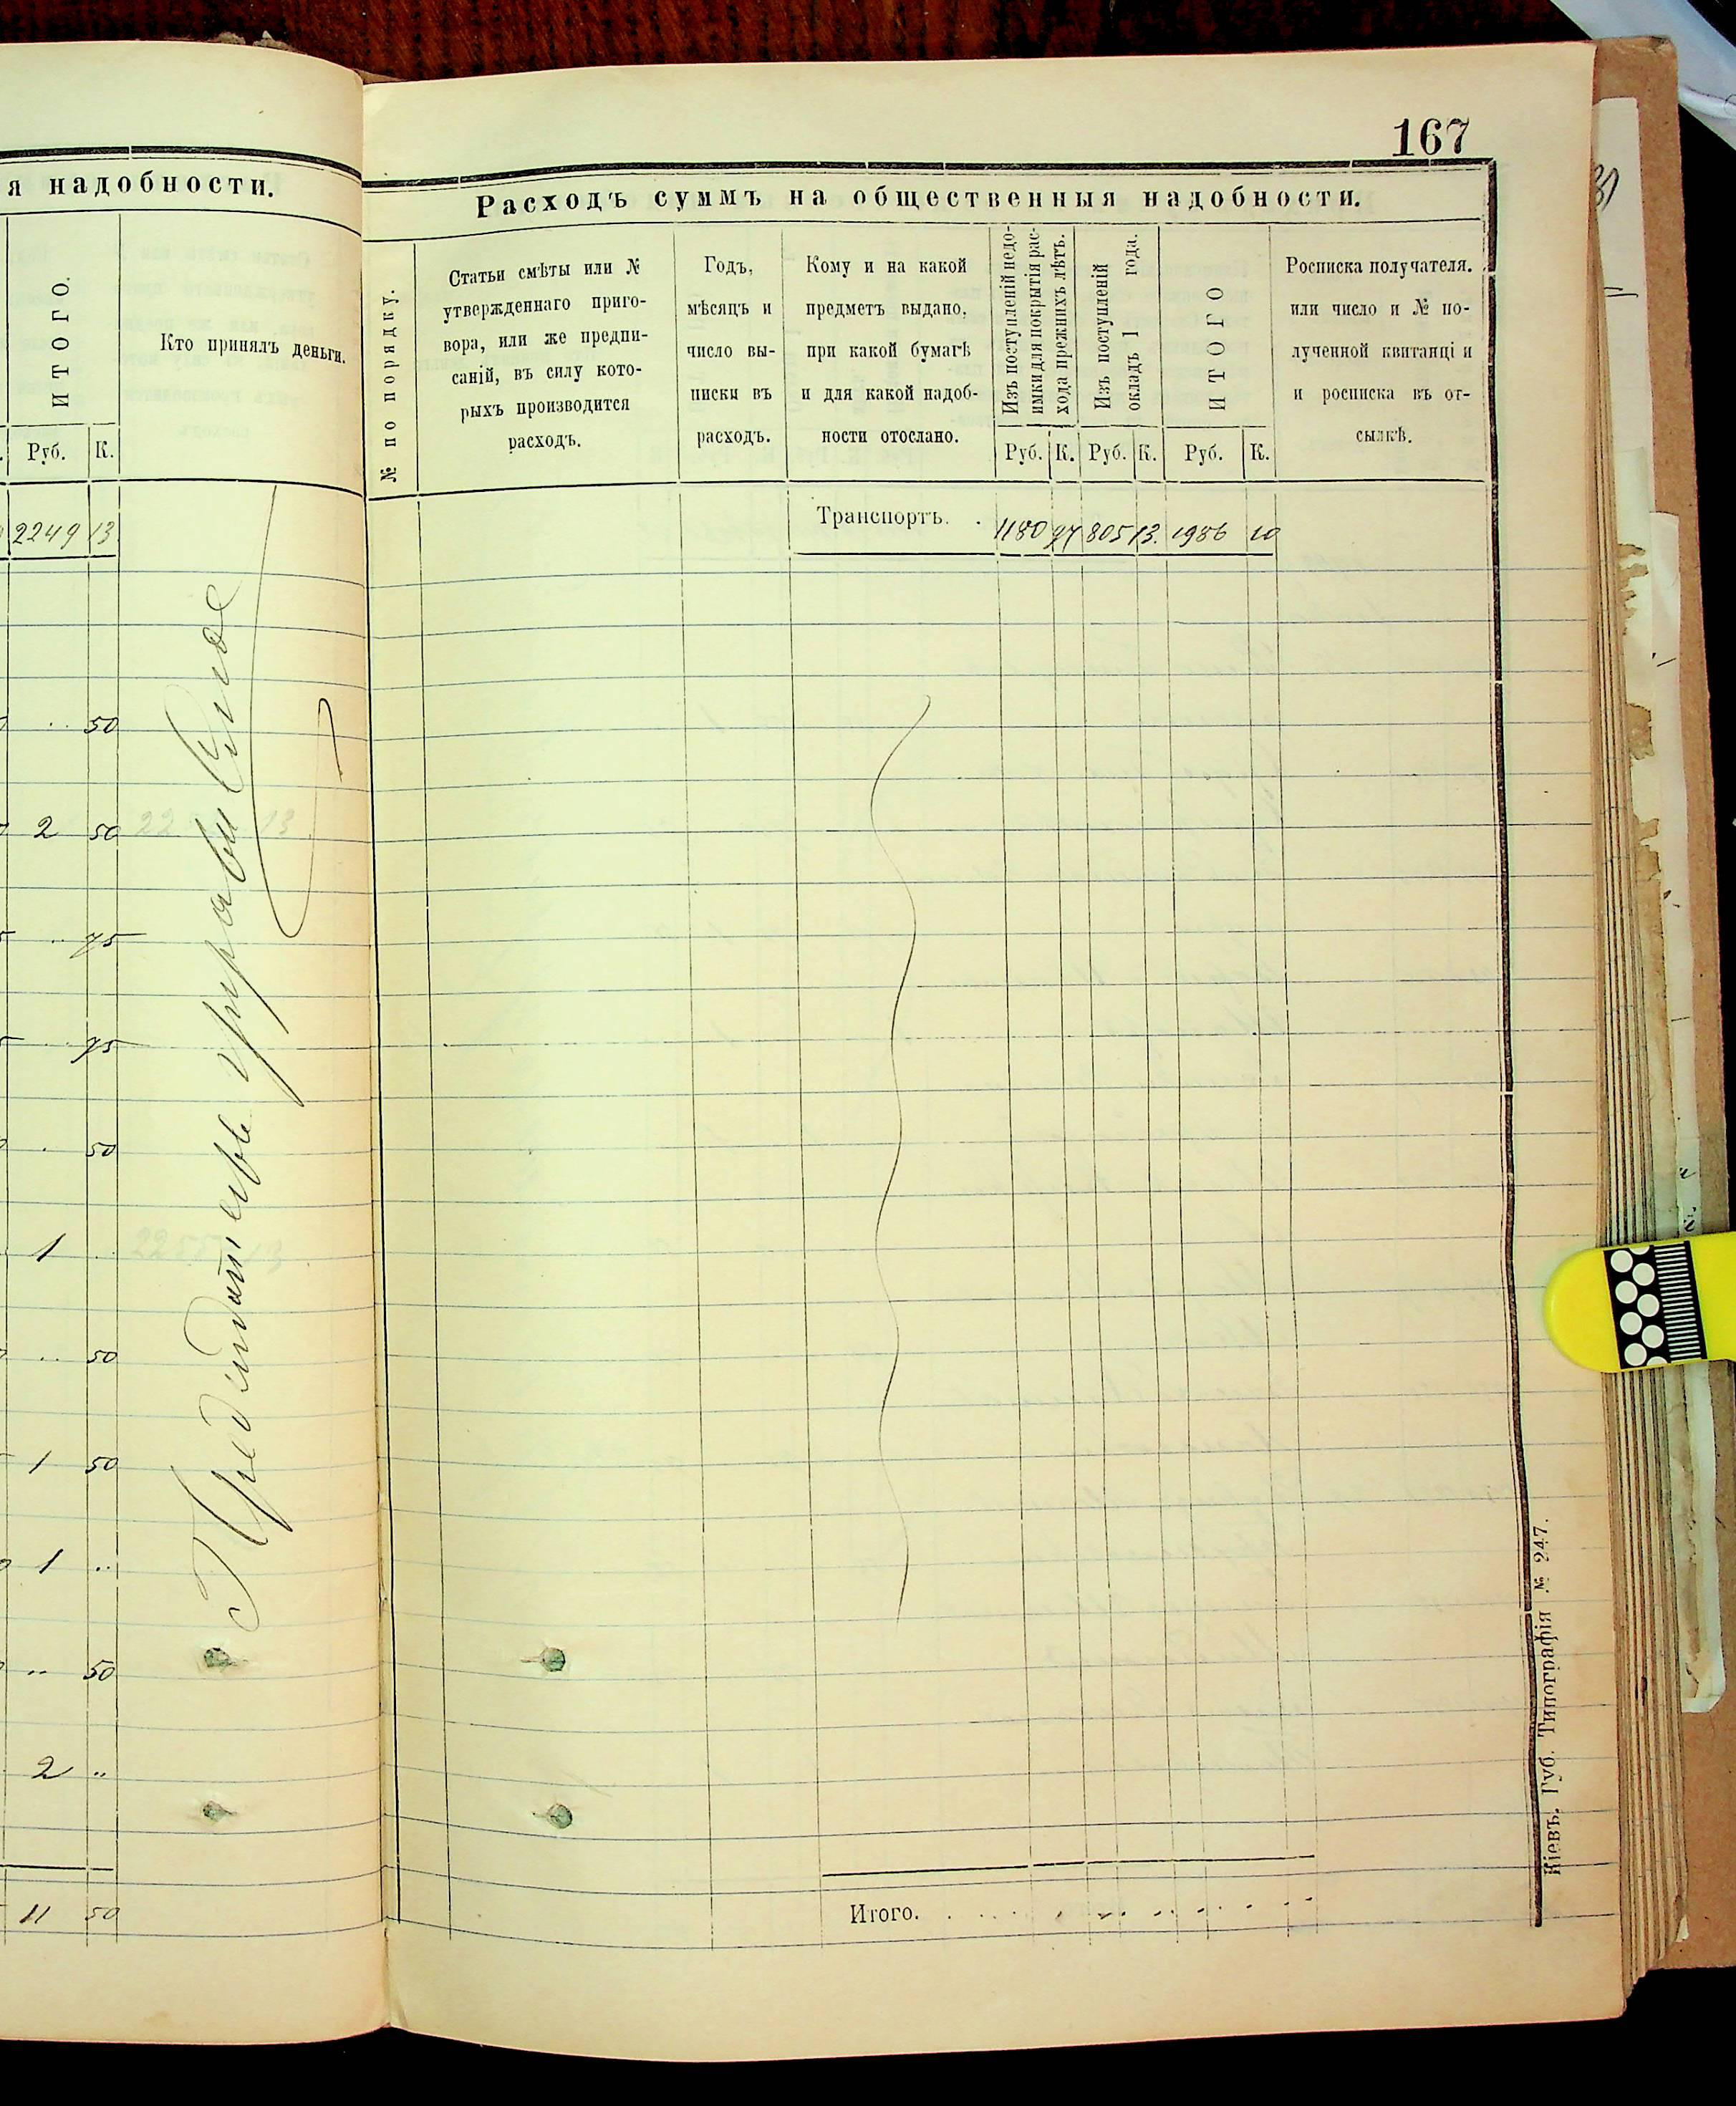 я надобности.
ИТОГО.
Кто принялъ деньги.
Руб. К.
2249 13
50
2 50
75
75
50
1
50
1 50
1 ..
.. 50
2 ..
11 50
167
Расходъ суммъ на общественныя надобности.
№ по порядку.
Статьи смѣты или №
утвержденнаго приго-
вора, или же предпи-
саній, въ силу кото-
рыхъ производится
расходъ.
Годъ,
мѣсяцъ и
число вы-
писки въ
расходъ.
Кому и на какой
предметъ выдано,
при какой бумагѣ
и для какой надоб-
ности отослано.
Изъ поступленій недо-
имки для покрытія рас-
хода прежнихъ лѣтъ.
Изъ поступленій
окладъ 1 года.
ИТОГО
Росписка получателя.
или число и № по-
лученной квитанціи
и росписка въ от-
сылкѣ.
Руб. К. Руб. К. Руб. К.
Транспортъ. . 1180 97 805 13. 1986 10
Итого.
Кіевъ. Губ. Типографія № 247.